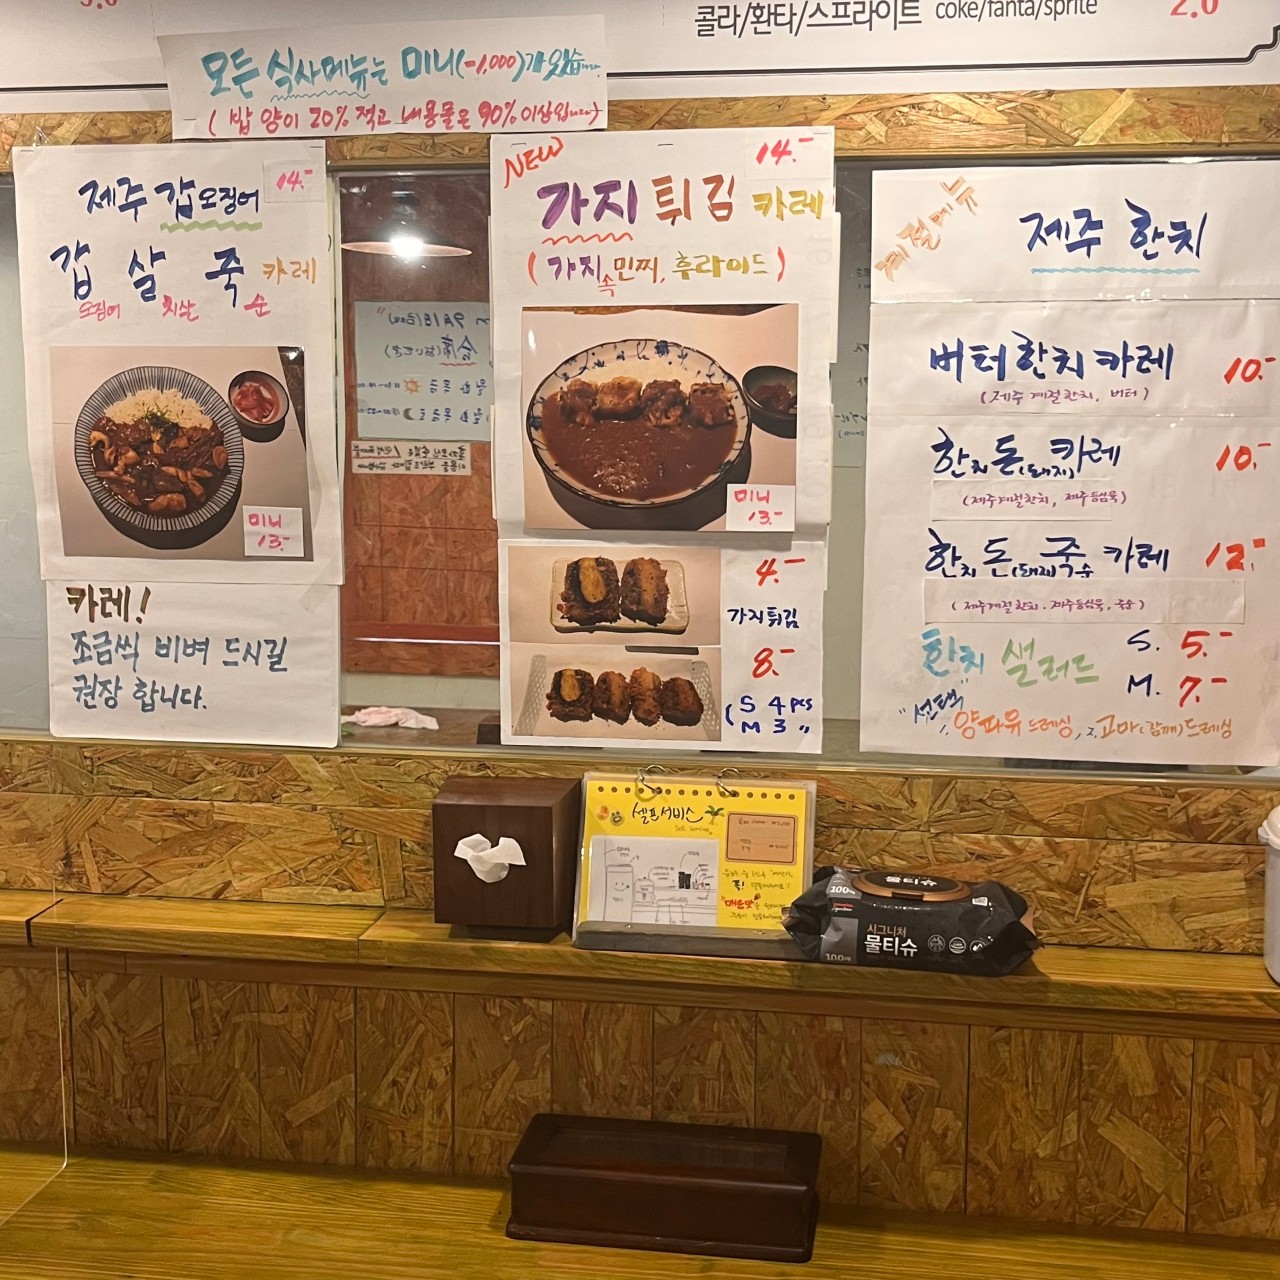 콜라/환타/스프라이트 coke/fanta/sprite 2.0
모든 식사메뉴는 미니(-1,000)가 있습니다.
( 밥 양이 20% 적고 내용물은 90% 이상입니다)
제주 갑오징어 14.-
갑 살 죽 카레
오징어 치살 순
미니
13.-
카레!
조금씩 비벼 드시길
권장 합니다.
NEW 14.-
가지 튀김 카레
( 가지속 민찌, 후라이드 )
미니
13.-
4.-
가지튀김
8.-
( S 4 pcs
M 3 〃
계절메뉴
제주 한치
버터한치 카레 10.-
( 제주 계절한치, 버터 )
한치돈(돼지)카레 10.-
(제주계절한치, 제주등심육)
한치돈(돼지)죽순 카레 12.-
( 제주계절한치. 제주등심육, 죽순 )
한치 샐러드 S. 5.-
M. 7.-
"선택"
1. 양파유드레싱, 2. 고마(참깨)드레싱
셀프서비스
Self service
꼭!
"매운맛"을
물티슈
100매
시그니처
물티슈
100매